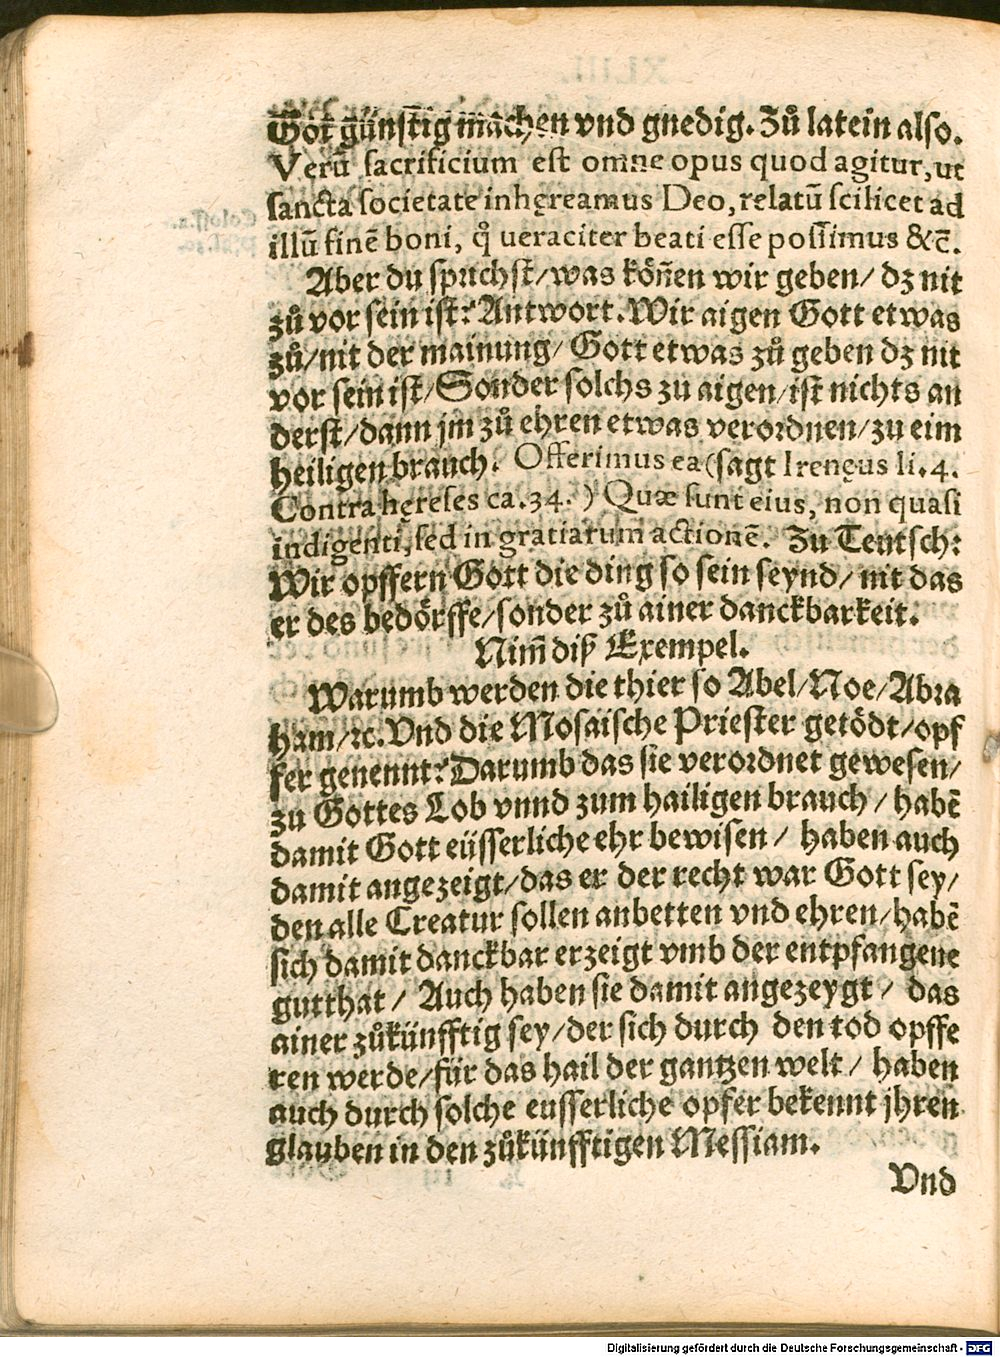 Got günstig machen vnd gnedig. Zů latein also.
Verũ sacrificium est omne opus quod agitur, ut
sancta societate inhęreamus Deo, relatũ scilicet ad
illũ finẽ boni, q̊ ueraciter beati esse possimus &c̃.
Aber du sprichst/ was köñen wir geben/ dz nit
zů vor sein ist? Antwort. Wir aigen Gott etwas
zů/ nit der mainung/ Gott etwas zů geben dz nit
vor sein ist/ Sonder solchs zu aigen/ ist nichts an
derst/ dann jm zů ehren etwas verordnen/ zu eim
heiligen brauch. Offerimus ea (sagt Irenęus li. 4.
Contra hęreses ca. 34. ) Quæ sunt eius, non quasi
indigenti, sed in gratiarum actionẽ. Zu Teutsch:
Wir opffern Gott die ding so sein seynd/ nit das
er des bedörffe/ sonder zů ainer danckbarkeit.
Nim̃ diß Exempel.
Warumb werden die thier so Abel/ Noe/ Abra
ham/ ꝛc. Vnd die Mosaische Priester getödt/ opf
fer genennt? Darumb das sie verordnet gewesen/
zu Gottes Lob vnnd zum hailigen brauch/ habẽ
damit Gott eüsserliche ehr bewisen/ haben auch
damit angezeigt/ das er der recht war Gott sey/
den alle Creatur sollen anbetten vnd ehren/ habẽ
sich damit danckbar erzeigt vmb der entpfangene
gutthat/ Auch haben sie damit angezeygt/ das
ainer zůkünfftig sey/ der sich durch den tod opffe
ren werde/ für das hail der gantzen welt/ haben
auch durch solche eusserliche opfer bekennt jhren
glauben in den zůkünfftigen Messiam.
Vnd
Digitalisierung gefördert durch die Deutsche Forschungsgemeinschaft - DFG